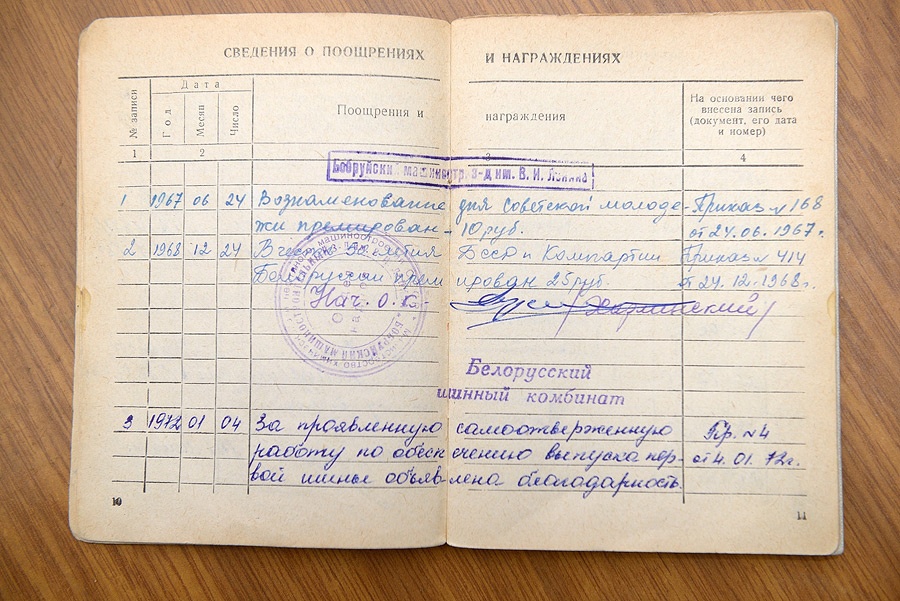 СВЕДЕНИЯ О ПООЩРЕНИЯХ И НАГРАЖДЕНИЯХ
№ записи Дата Поощрения и награждения На основании чего внесена запись (документ, его дата и номер)
Год Месяц Число
1 2 3 4
Бобруйский машиностр. з-д им. В. И. Ленина
1 1967 06 24 Вознаменование дня советской молоде- Приказ № 168
жи премирован - 10 руб. от 24.06.1967г.
2 1968 12 24 В честь 50-летия БССР и Компартии Приказ № 414
Белоруссии премирован 25 руб. от 24.12.1968г.
Нач. О.К.
Белорусский
шинный комбинат
3 1972 01 04 За проявленную самоотверженную Пр. №4
работу по обеспечению выпуска пер- от 4.01.72г.
вой шины объявлена благодарность.
10 11